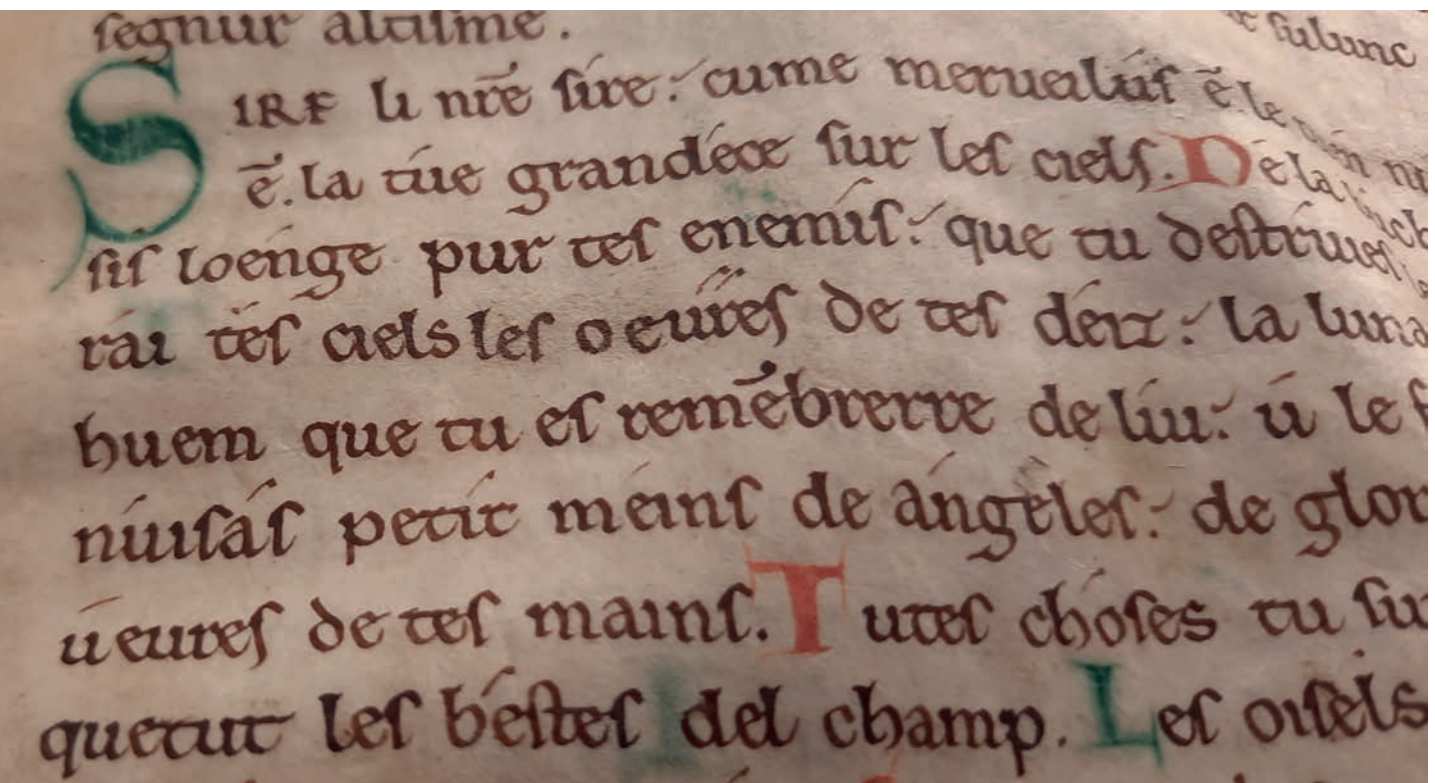 segnur altisme.
SIRE li nr̄e sire: cume merueilus ē. le
ē. la túe grandéce sur les ciels. De la
sis loenge pur tes enemis: que tu destruies
rai tes ciels les oeures de tes deiz: la luna
huem que tu es remēbrerre de liu: u le
nuisas petit meins de ángeles: de glor
ueures de tes mains. Tutes choses tu su
quetut les béstes del champ. Les oisels